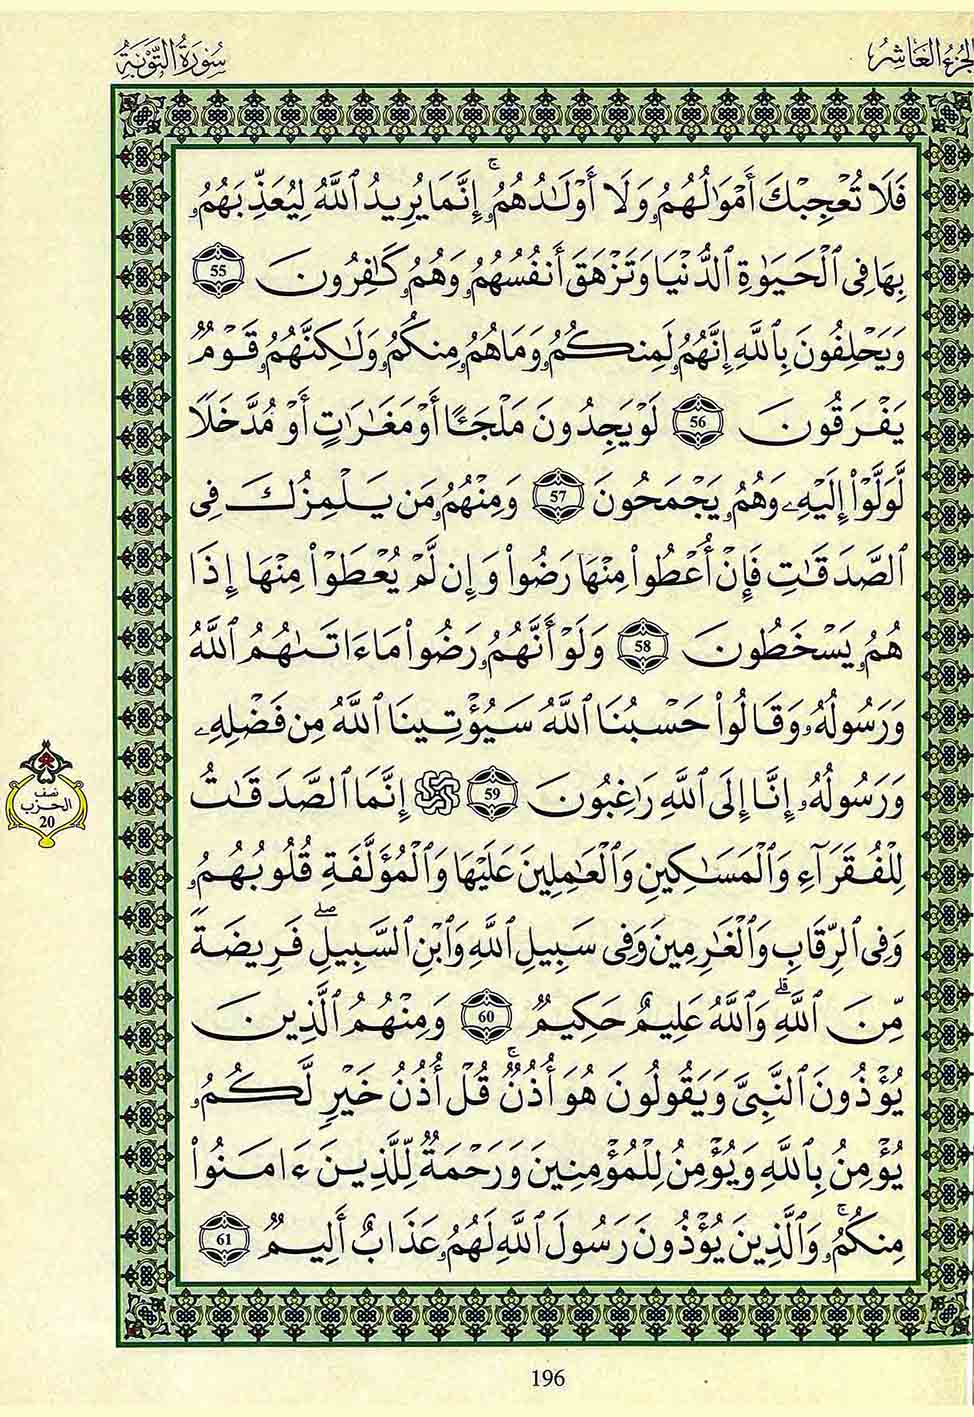 الجزء العاشر
سورة التوبة
فَلَا تُعْجِبْكَ أَمْوَٰلُهُمُۥ وَلَا أَوْلَٰدُهُمُۥٓ ۚ إِنَّمَا يُرِيدُ ٱللَّهُ لِيُعَذِّبَهُمُۥ
بِهَا فِى ٱلْحَيَوٰةِ ٱلدُّنْيَا وَتَزْهَقَ أَنفُسُهُمُۥ وَهُمُۥ كَٰفِرُونَ 55
وَيَحْلِفُونَ بِٱللَّهِ إِنَّهُمُۥ لَمِنكُمُۥ وَمَا هُمُۥ مِنكُمُۥ وَلَٰكِنَّهُمُۥ قَوْمٌ
يَفْرَقُونَ 56 لَوْ يَجِدُونَ مَلْجَـًٔا أَوْ مَغَٰرَٰتٍ أَوْ مُدَّخَلًا
لَّوَلَّوْا۟ إِلَيْهِۦ وَهُمُۥ يَجْمَحُونَ 57 وَمِنْهُمُۥ مَن يَلْمِزُكَ فِى
ٱلصَّدَقَٰتِ فَإِنْ أُعْطُوا۟ مِنْهَا رَضُوا۟ وَإِن لَّمْ يُعْطَوْا۟ مِنْهَا إِذَا
هُمُۥ يَسْخَطُونَ 58 وَلَوْ أَنَّهُمُۥ رَضُوا۟ مَا ءَاتَىٰهُمُ ٱللَّهُ
وَرَسُولُهُۥ وَقَالُوا۟ حَسْبُنَا ٱللَّهُ سَيُؤْتِينَا ٱللَّهُ مِن فَضْلِهِۦ
وَرَسُولُهُۥ إِنَّا إِلَى ٱللَّهِ رَٰغِبُونَ 59 إِنَّمَا ٱلصَّدَقَٰتُ
لِلْفُقَرَآءِ وَٱلْمَسَٰكِينِ وَٱلْعَٰمِلِينَ عَلَيْهَا وَٱلْمُؤَلَّفَةِ قُلُوبُهُمُۥ
وَفِى ٱلرِّقَابِ وَٱلْغَٰرِمِينَ وَفِى سَبِيلِ ٱللَّهِ وَٱبْنِ ٱلسَّبِيلِ ۖ فَرِيضَةً
مِّنَ ٱللَّهِ ۗ وَٱللَّهُ عَلِيمٌ حَكِيمٌ 60 وَمِنْهُمُ ٱلَّذِينَ
يُؤْذُونَ ٱلنَّبِىَّ وَيَقُولُونَ هُوَ أُذُنٌ ۚ قُلْ أُذُنُ خَيْرٍ لَّكُمُۥ
يُؤْمِنُ بِٱللَّهِ وَيُؤْمِنُ لِلْمُؤْمِنِينَ وَرَحْمَةٌ لِّلَّذِينَ ءَامَنُوا۟
مِنكُمُۥ ۚ وَٱلَّذِينَ يُؤْذُونَ رَسُولَ ٱللَّهِ لَهُمُۥ عَذَابٌ أَلِيمٌ 61
نصف
الحزب
20
196